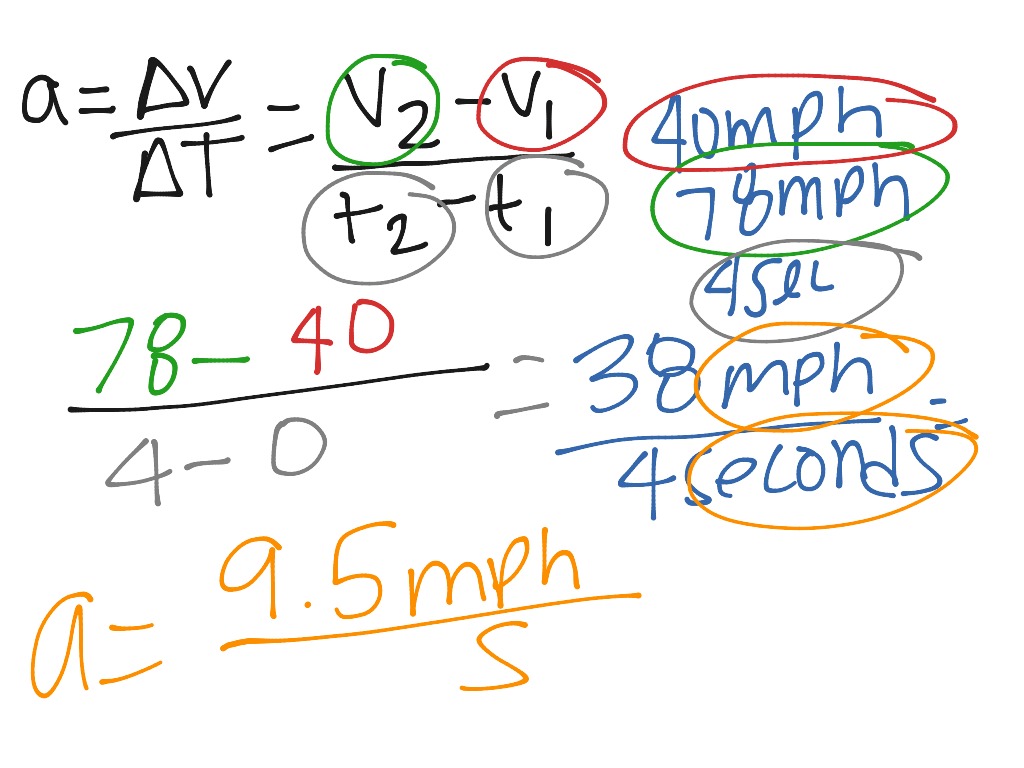 a = ΔV/ΔT = V2 - V1 / t2 - t1
40mph
78mph
4sec
78 - 40 / 4 - 0 = 38 mph / 4 seconds =
a = 9.5 mph / s